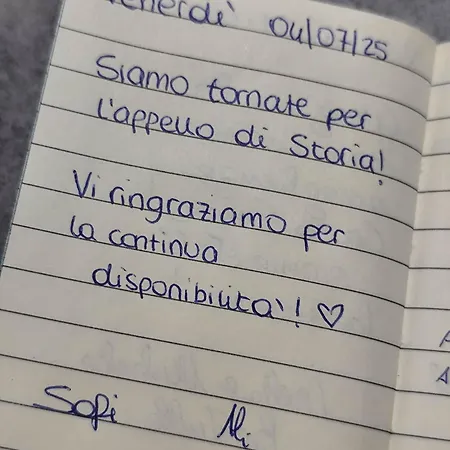 Venerdì 04/07/25
Siamo tornate per
l'appello di Storia!
Vi ringraziamo per
la continua
disponibilità! ♡
Sofi Ali